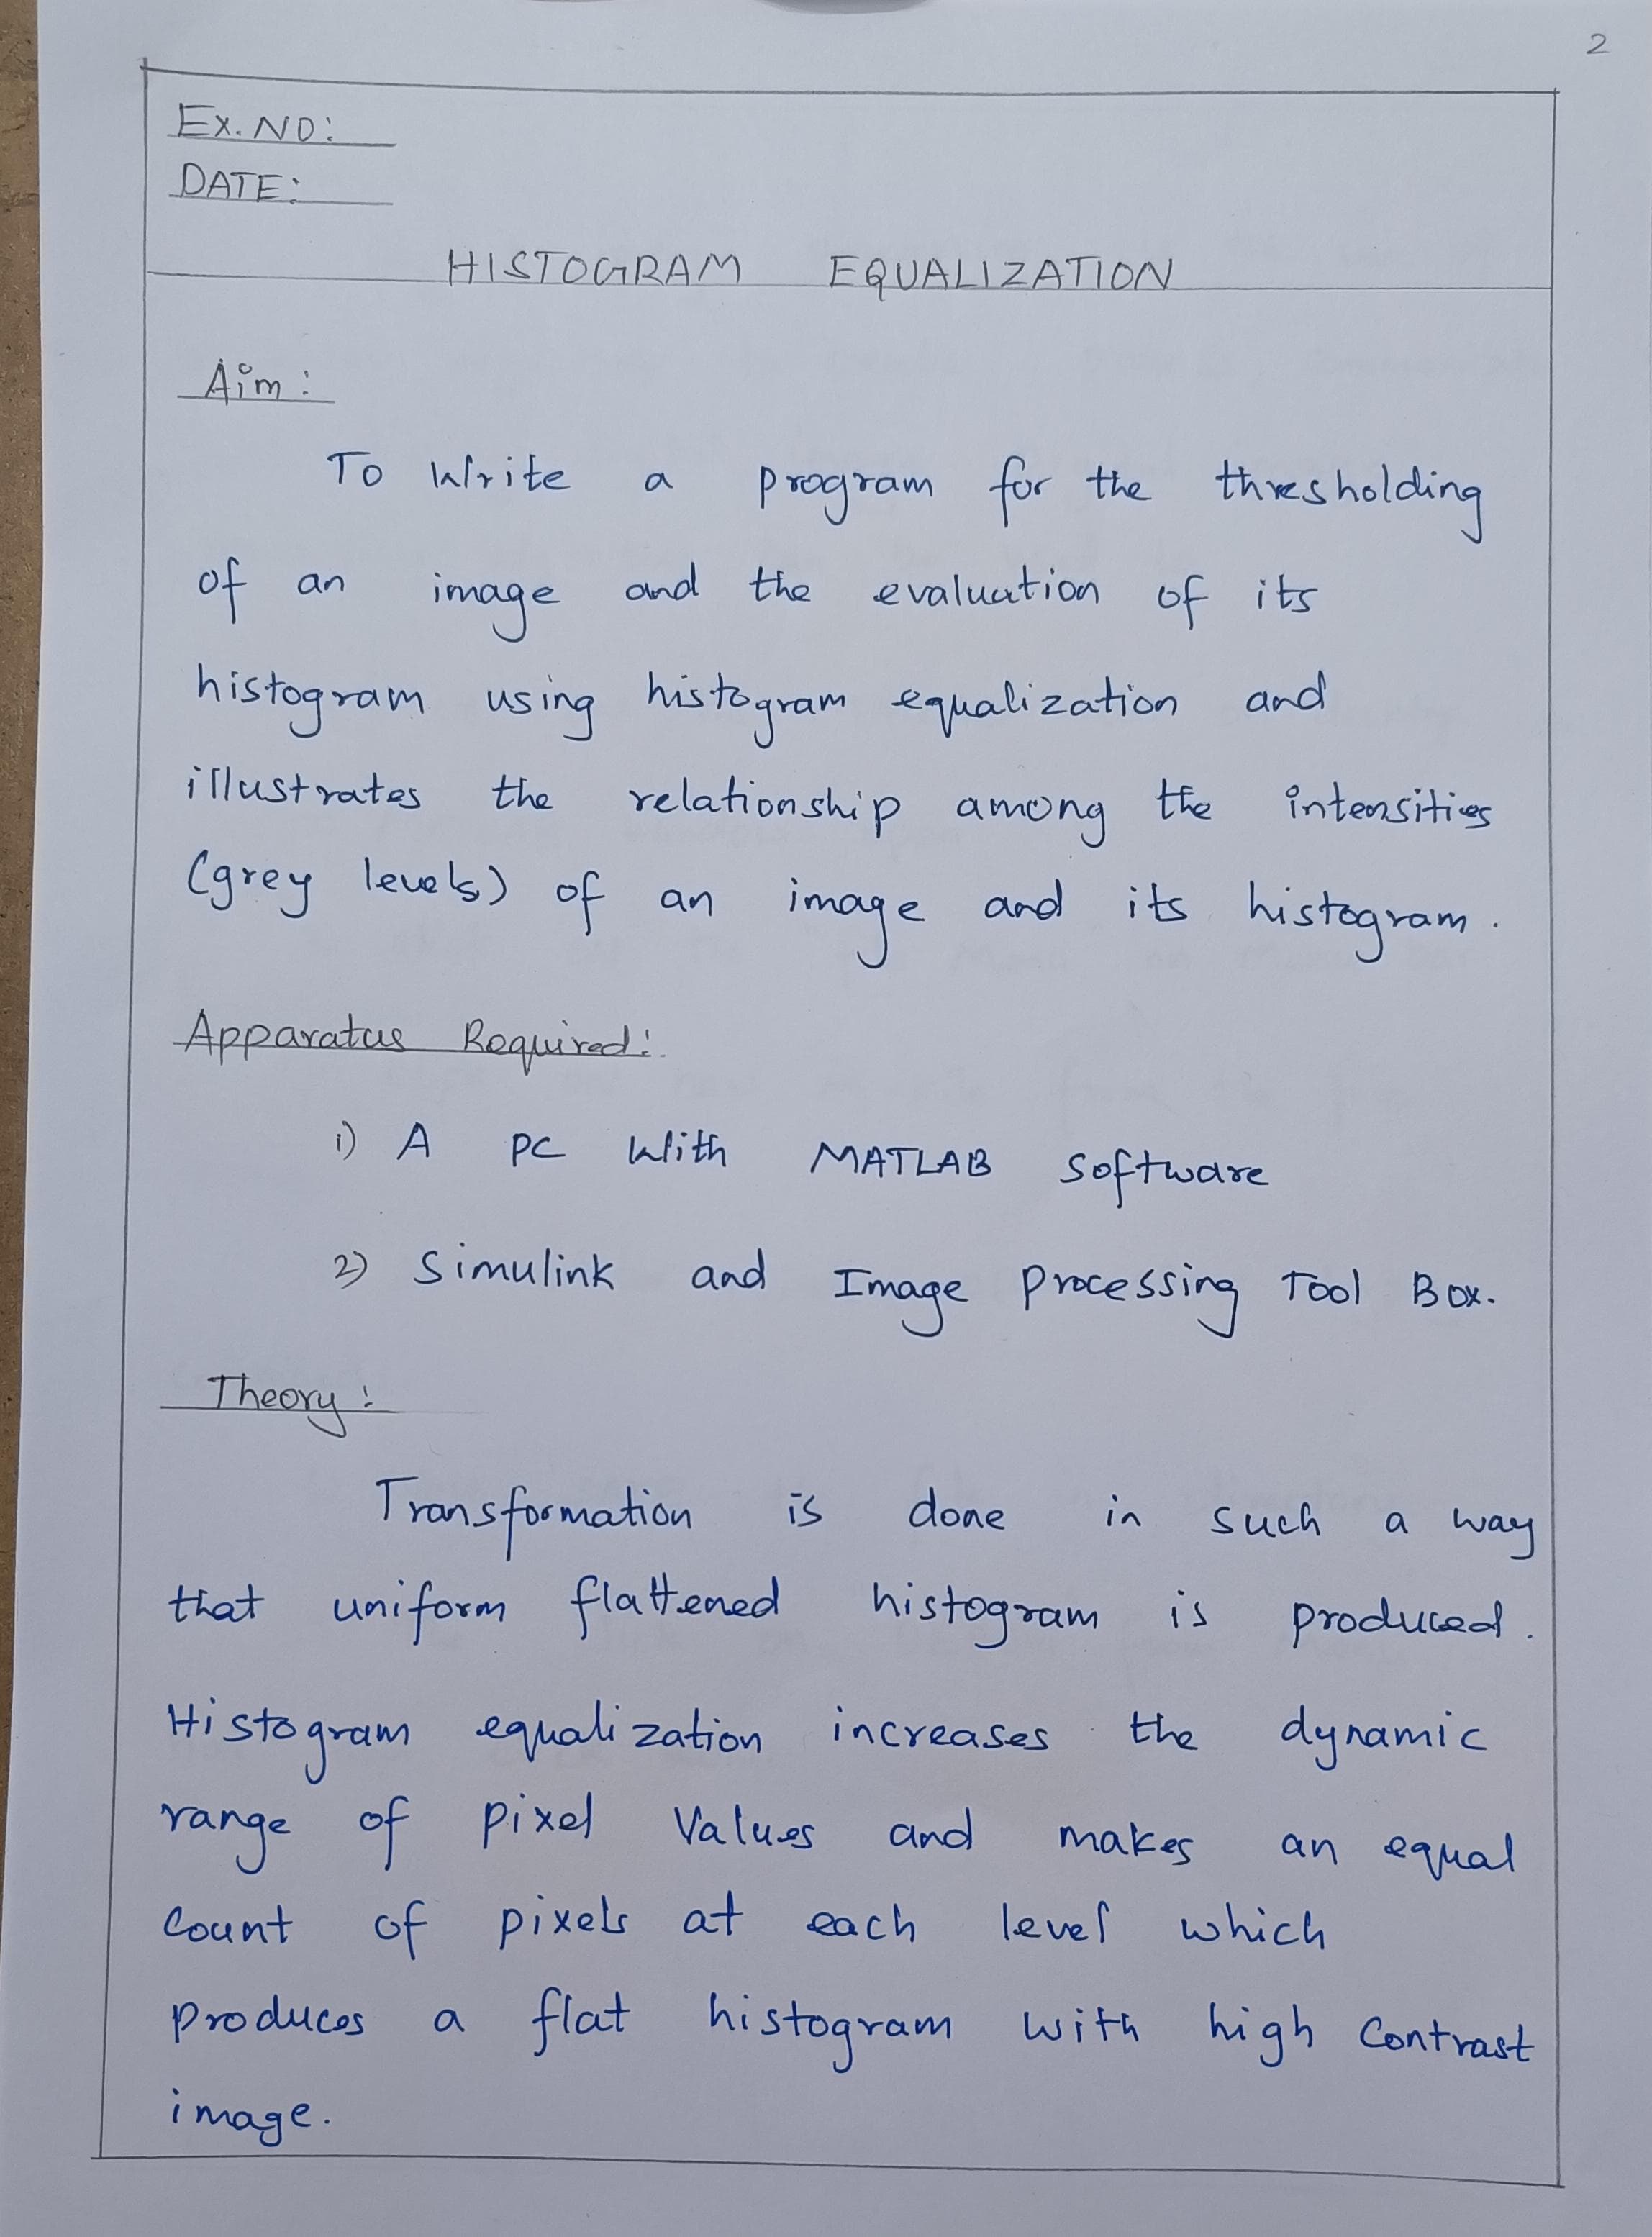 2
Ex. NO:
DATE:
HISTOGRAM EQUALIZATION
Aim:
To Write a program for the thresholding
of an image and the evaluation of its
histogram using histogram equalization and
illustrates the relationship among the intensities
(grey levels) of an image and its histogram.
Apparatus Required:
1) A PC With MATLAB Software
2) Simulink and Image Processing Tool Box.
Theory:
Transformation is done in such a way
that uniform flattened histogram is produced.
Histogram equalization increases the dynamic
range of pixel Values and makes an equal
Count of pixels at each level which
produces a flat histogram with high Contrast
image.